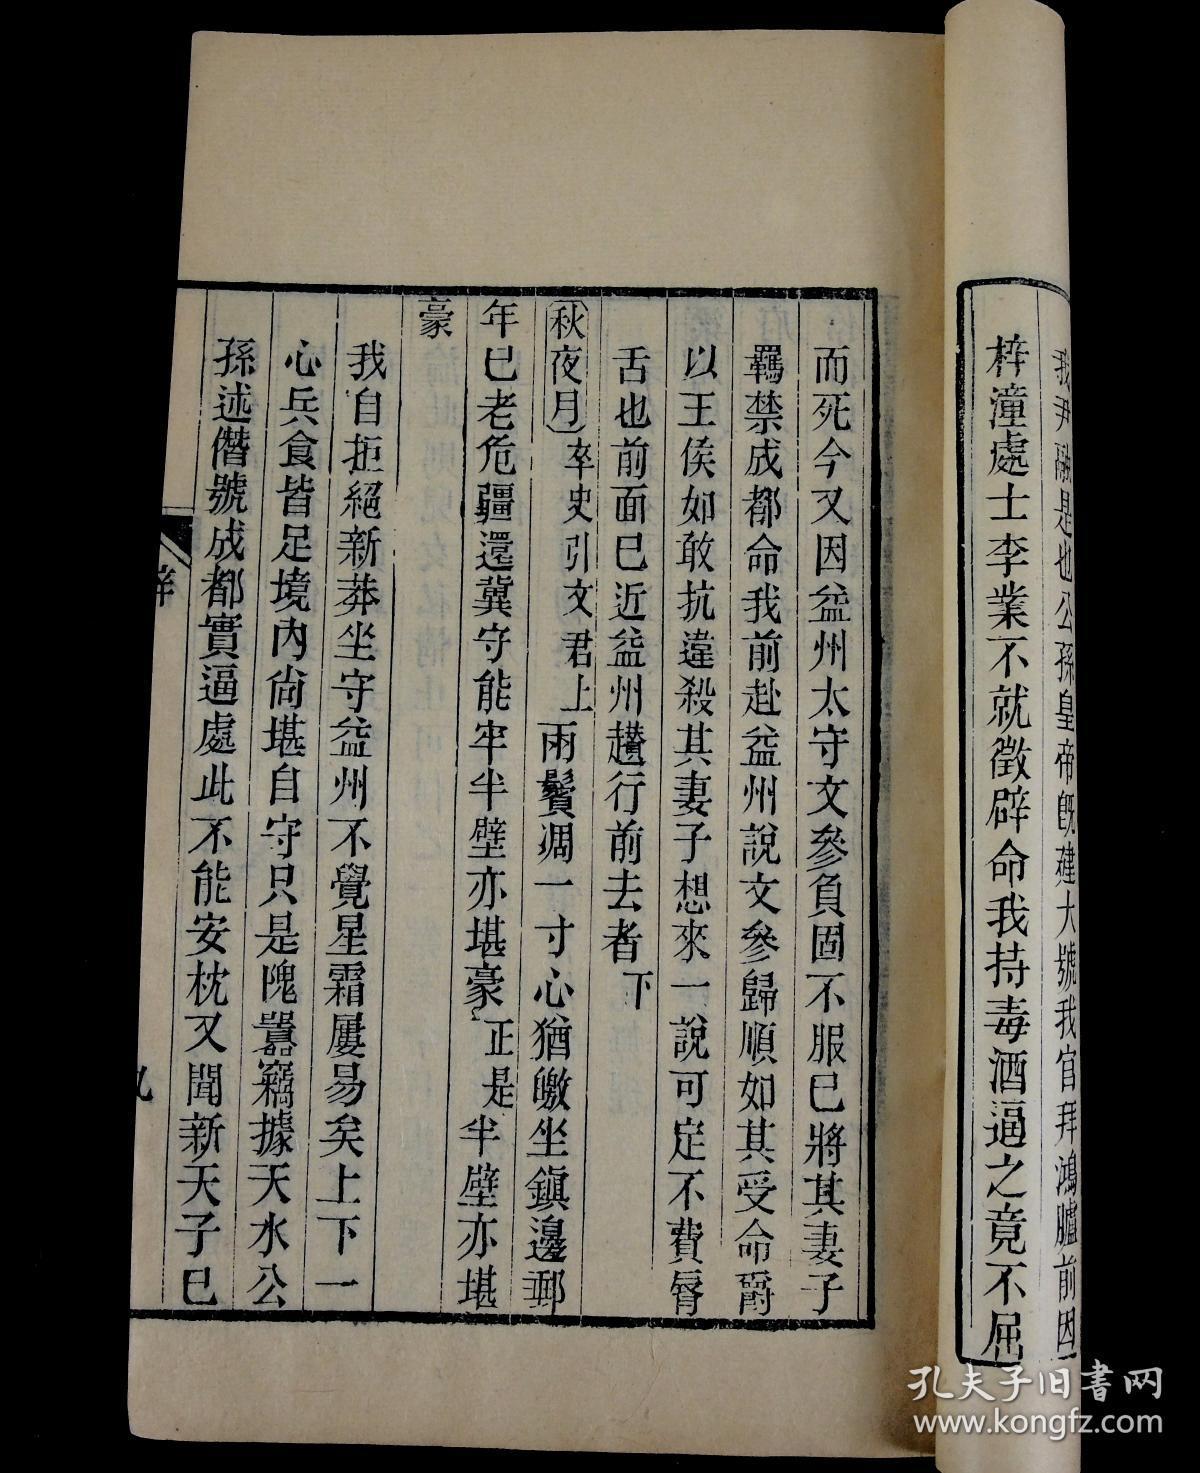 我尹融是也公孫皇帝旣建大號我官拜鴻臚前因
梓潼處士李業不就徵辟命我持毒酒逼之竟不屈
而死今又因益州太守文參負固不服已將其妻子
羈禁成都命我前赴益州說文參歸順如其受命爵
以王侯如敢抗違殺其妻子想來一說可定不費脣
舌也前面已近益州趲行前去者 下
秋夜月 卒史引文君上 兩鬢凋一寸心猶皦坐鎮邊郵
年已老危疆還冀守能牢半壁亦堪豪 正是 半壁亦堪
豪
我自拒絕新莽坐守益州不覺星霜屢易矣上下一
心兵食皆足境內尙堪自守只是隗囂竊據天水公
孫述僭號成都實逼處此不能安枕又聞新天子已
九
孔夫子旧书网
www.kongfz.com